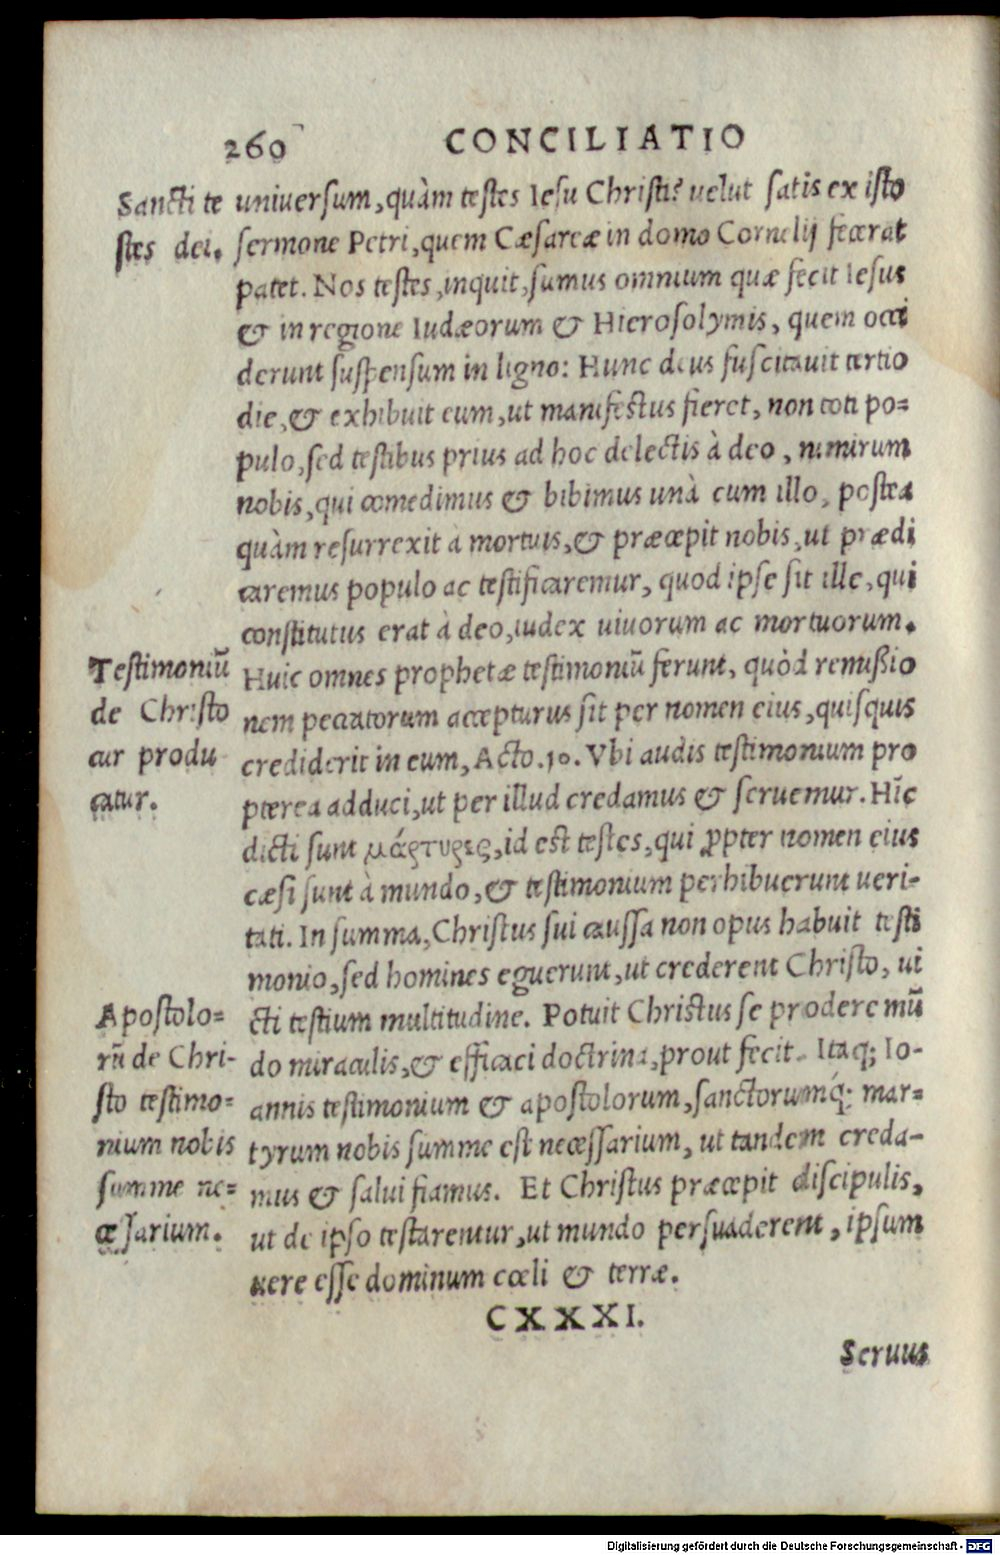 260 CONCILIATIO
Sancti te
stes dei.
uniuersum, quàm testes Iesu Christi? uelut satis ex isto
sermone Petri, quem Cæsareæ in domo Cornelij fecerat
patet. Nos testes, inquit, sumus omnium quæ fecit Iesus
& in regione Iudæorum & Hierosolymis, quem occi
derunt suspensum in ligno: Hunc deus suscitauit tertio
die, & exhibuit eum, ut manifestus fieret, non toti po=
pulo, sed testibus prius ad hoc delectis à deo, nimirum
nobis, qui comedimus & bibimus unà cum illo, postea
quàm resurrexit à mortuis, & præcepit nobis, ut prædi
caremus populo ac testificaremur, quod ipse sit ille, qui
constitutus erat à deo, iudex uiuorum ac mortuorum.
Testimoniũ
de Christo
cur produ
catur.
Huic omnes prophetæ testimoniũ ferunt, quòd remißio
nem peccatorum accepturus sit per nomen eius, quisquis
crediderit in eum, Acto.10. Vbi audis testimonium pro
pterea adduci, ut per illud credamus & seruemur. Hĩc
dicti sunt μάρτυρες, id est testes, qui ꝓpter nomen eius
cæsi sunt à mundo, & testimonium perhibuerunt ueri-
tati. In summa, Christus sui caussa non opus habuit testi
monio, sed homines eguerunt, ut crederent Christo, ui
Apostolo=
rũ de Chri-
sto testimo=
nium nobis
summe ne=
cessarium.
cti testium multitudine. Potuit Christus se prodere mũ
do miraculis, & efficaci doctrina, prout fecit. Itaq; Io-
annis testimonium & apostolorum, sanctorumq́; mar=
tyrum nobis summe est necessarium, ut tandem creda-
mus & salui fiamus. Et Christus præcepit discipulis,
ut de ipso testarentur, ut mundo persuaderent, ipsum
uere esse dominum cœli & terræ.
CXXXI.
Seruus
Digitalisierung gefördert durch die Deutsche Forschungsgemeinschaft - DFG